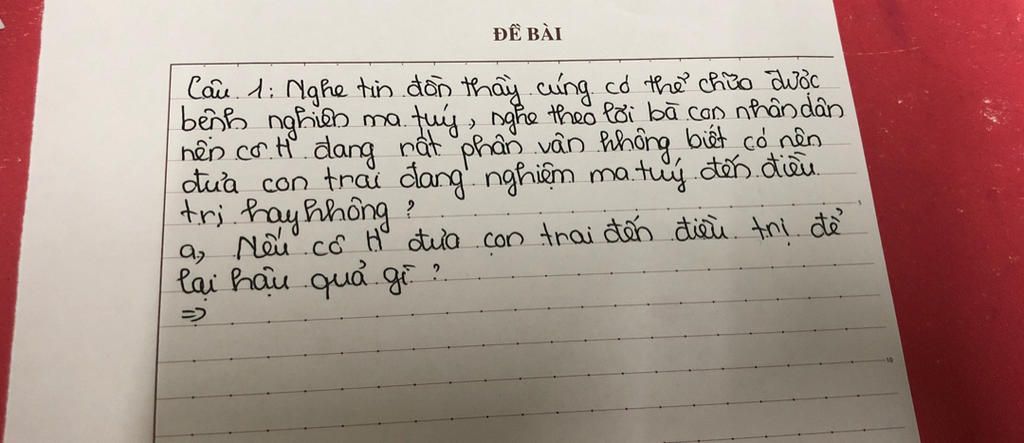 ĐỀ BÀI
Câu 1: Nghe tin đồn thầy cúng có thể chữa được
bệnh nghiện ma tuý, nghe theo lời bà con nhân dân
nên cô H đang rất phân vân không biết có nên
đưa con trai đang nghiệm ma tuý đến điều
trị hay không ?
a, Nếu cô H đưa con trai đến điều trị để
lại hậu quả gì ?
=>
10